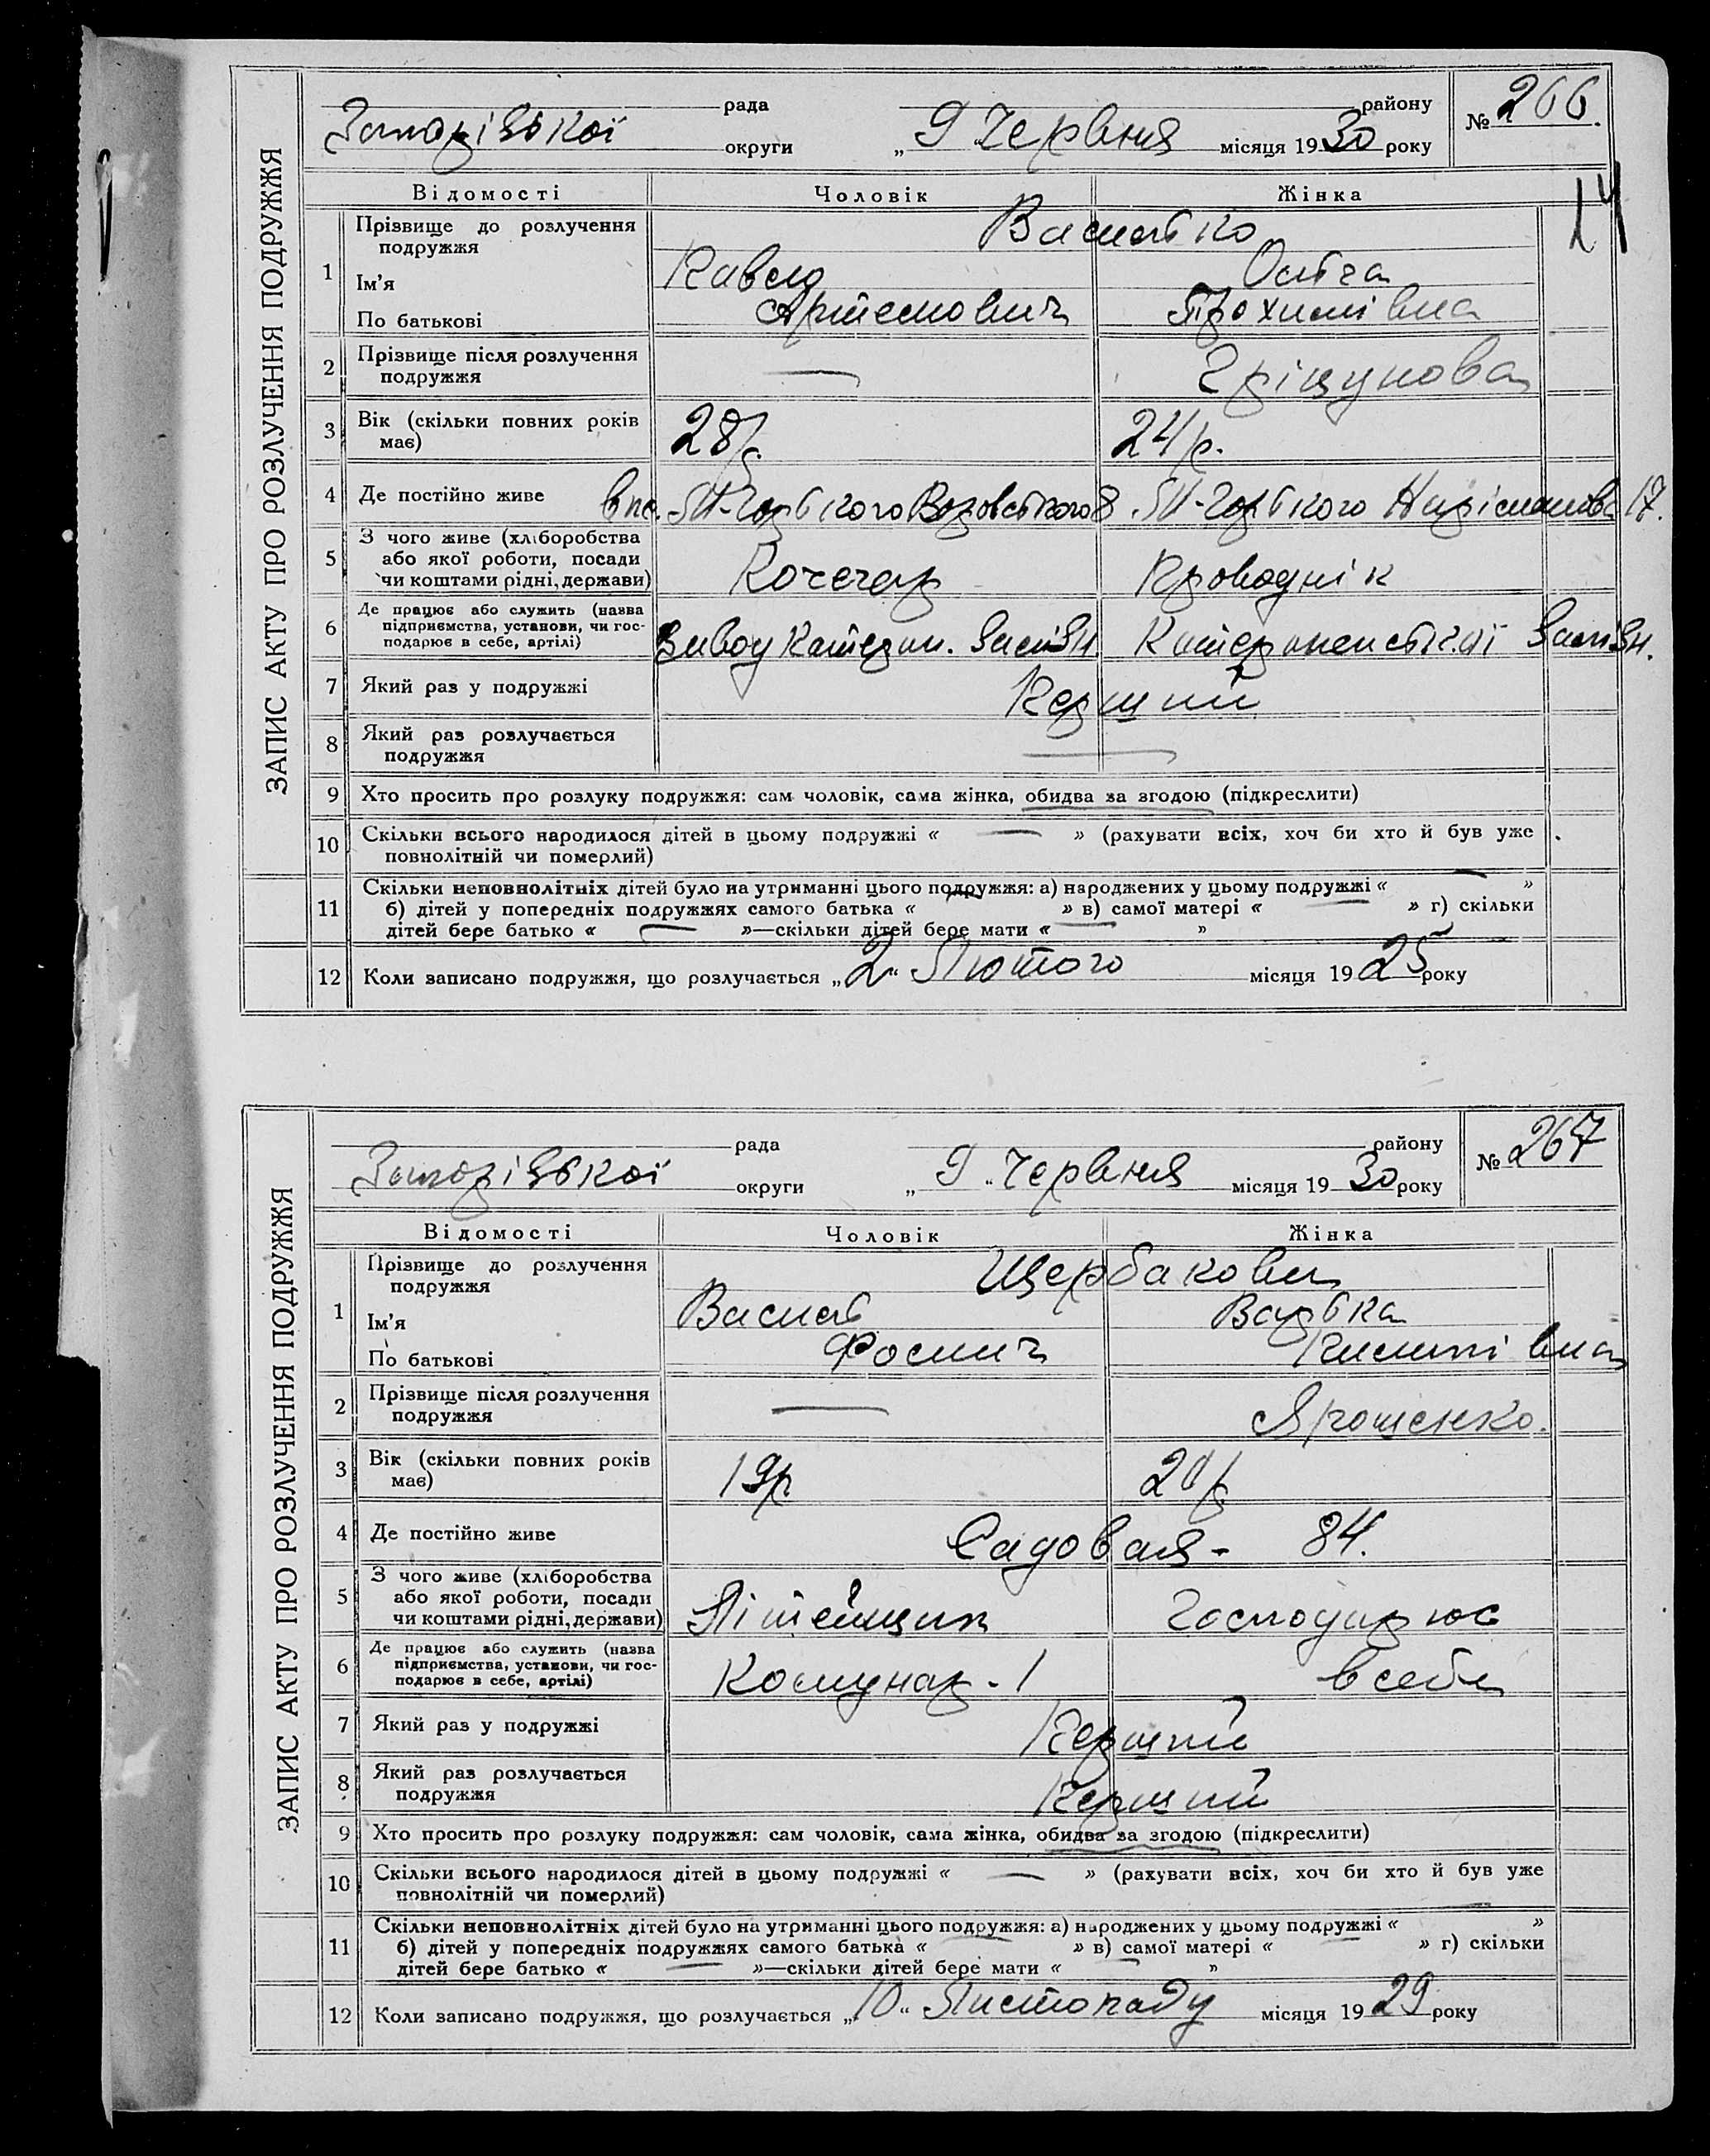 ЗАПИС АКТУ ПРО РОЗЛУЧЕННЯ ПОДРУЖЖЯ
рада району № 266.
Запорізької округи „ 9 Червня місяця 1930 року
14
Відомості Чоловік Жінка
1 Прізвище до розлучення подружжя Василько
Ім'я Павло Ольга
По батькові Артемович Трохимівна
2 Прізвище після розлучення подружжя — Гріцунова
3 Вік (скільки повних років має) 28р 24р.
4 Де постійно живе М-Горького 8 М-Горького 17.
5 З чого живе (хліборобства або якої роботи, посади чи коштами рідні, держави) Кочегар Проводнік
6 Де працює або служить (назва підприємства, установи, чи господарює в себе, артілі) Катерин. Залізн Катерининської Залізн.
7 Який раз у подружжі Перший
8 Який раз розлучається подружжя —
9 Хто просить про розлуку подружжя: сам чоловік, сама жінка, обидва за згодою (підкреслити)
10 Скільки всього народилося дітей в цьому подружжі « — » (рахувати всіх, хоч би хто й був уже
повнолітній чи померлий)
11 Скільки неповнолітніх дітей було на утриманні цього подружжя: а) народжених у цьому подружжі « — »
б) дітей у попередніх подружжях самого батька « — » в) самої матері « — » г) скільки
дітей бере батько « — »—скільки дітей бере мати « — »
12 Коли записано подружжя, що розлучається „2" Лютого місяця 1925 року
ЗАПИС АКТУ ПРО РОЗЛУЧЕННЯ ПОДРУЖЖЯ
рада району № 267
Запорізької округи „ 9 " Червня місяця 1930 року
Відомості Чоловік Жінка
1 Прізвище до розлучення подружжя Щербакови
Ім'я Василь Варька
По батькові Фомич Пилипівна
2 Прізвище після розлучення подружжя — Ярошенко.
3 Вік (скільки повних років має) 19р 20р
4 Де постійно живе Садовая - 84.
5 З чого живе (хліборобства або якої роботи, посади чи коштами рідні, держави) Літейщик Господарює
6 Де працює або служить (назва підприємства, установи, чи господарює в себе, артілі) Комунар - 1 в себе
7 Який раз у подружжі Перший
8 Який раз розлучається подружжя Перший
9 Хто просить про розлуку подружжя: сам чоловік, сама жінка, обидва за згодою (підкреслити)
10 Скільки всього народилося дітей в цьому подружжі « — » (рахувати всіх, хоч би хто й був уже
повнолітній чи померлий)
11 Скільки неповнолітніх дітей було на утриманні цього подружжя: а) народжених у цьому подружжі « — »
б) дітей у попередніх подружжях самого батька « — » в) самої матері « — » г) скільки
дітей бере батько « — »—скільки дітей бере мати « — »
12 Коли записано подружжя, що розлучається „10" Листопаду місяця 1929 року